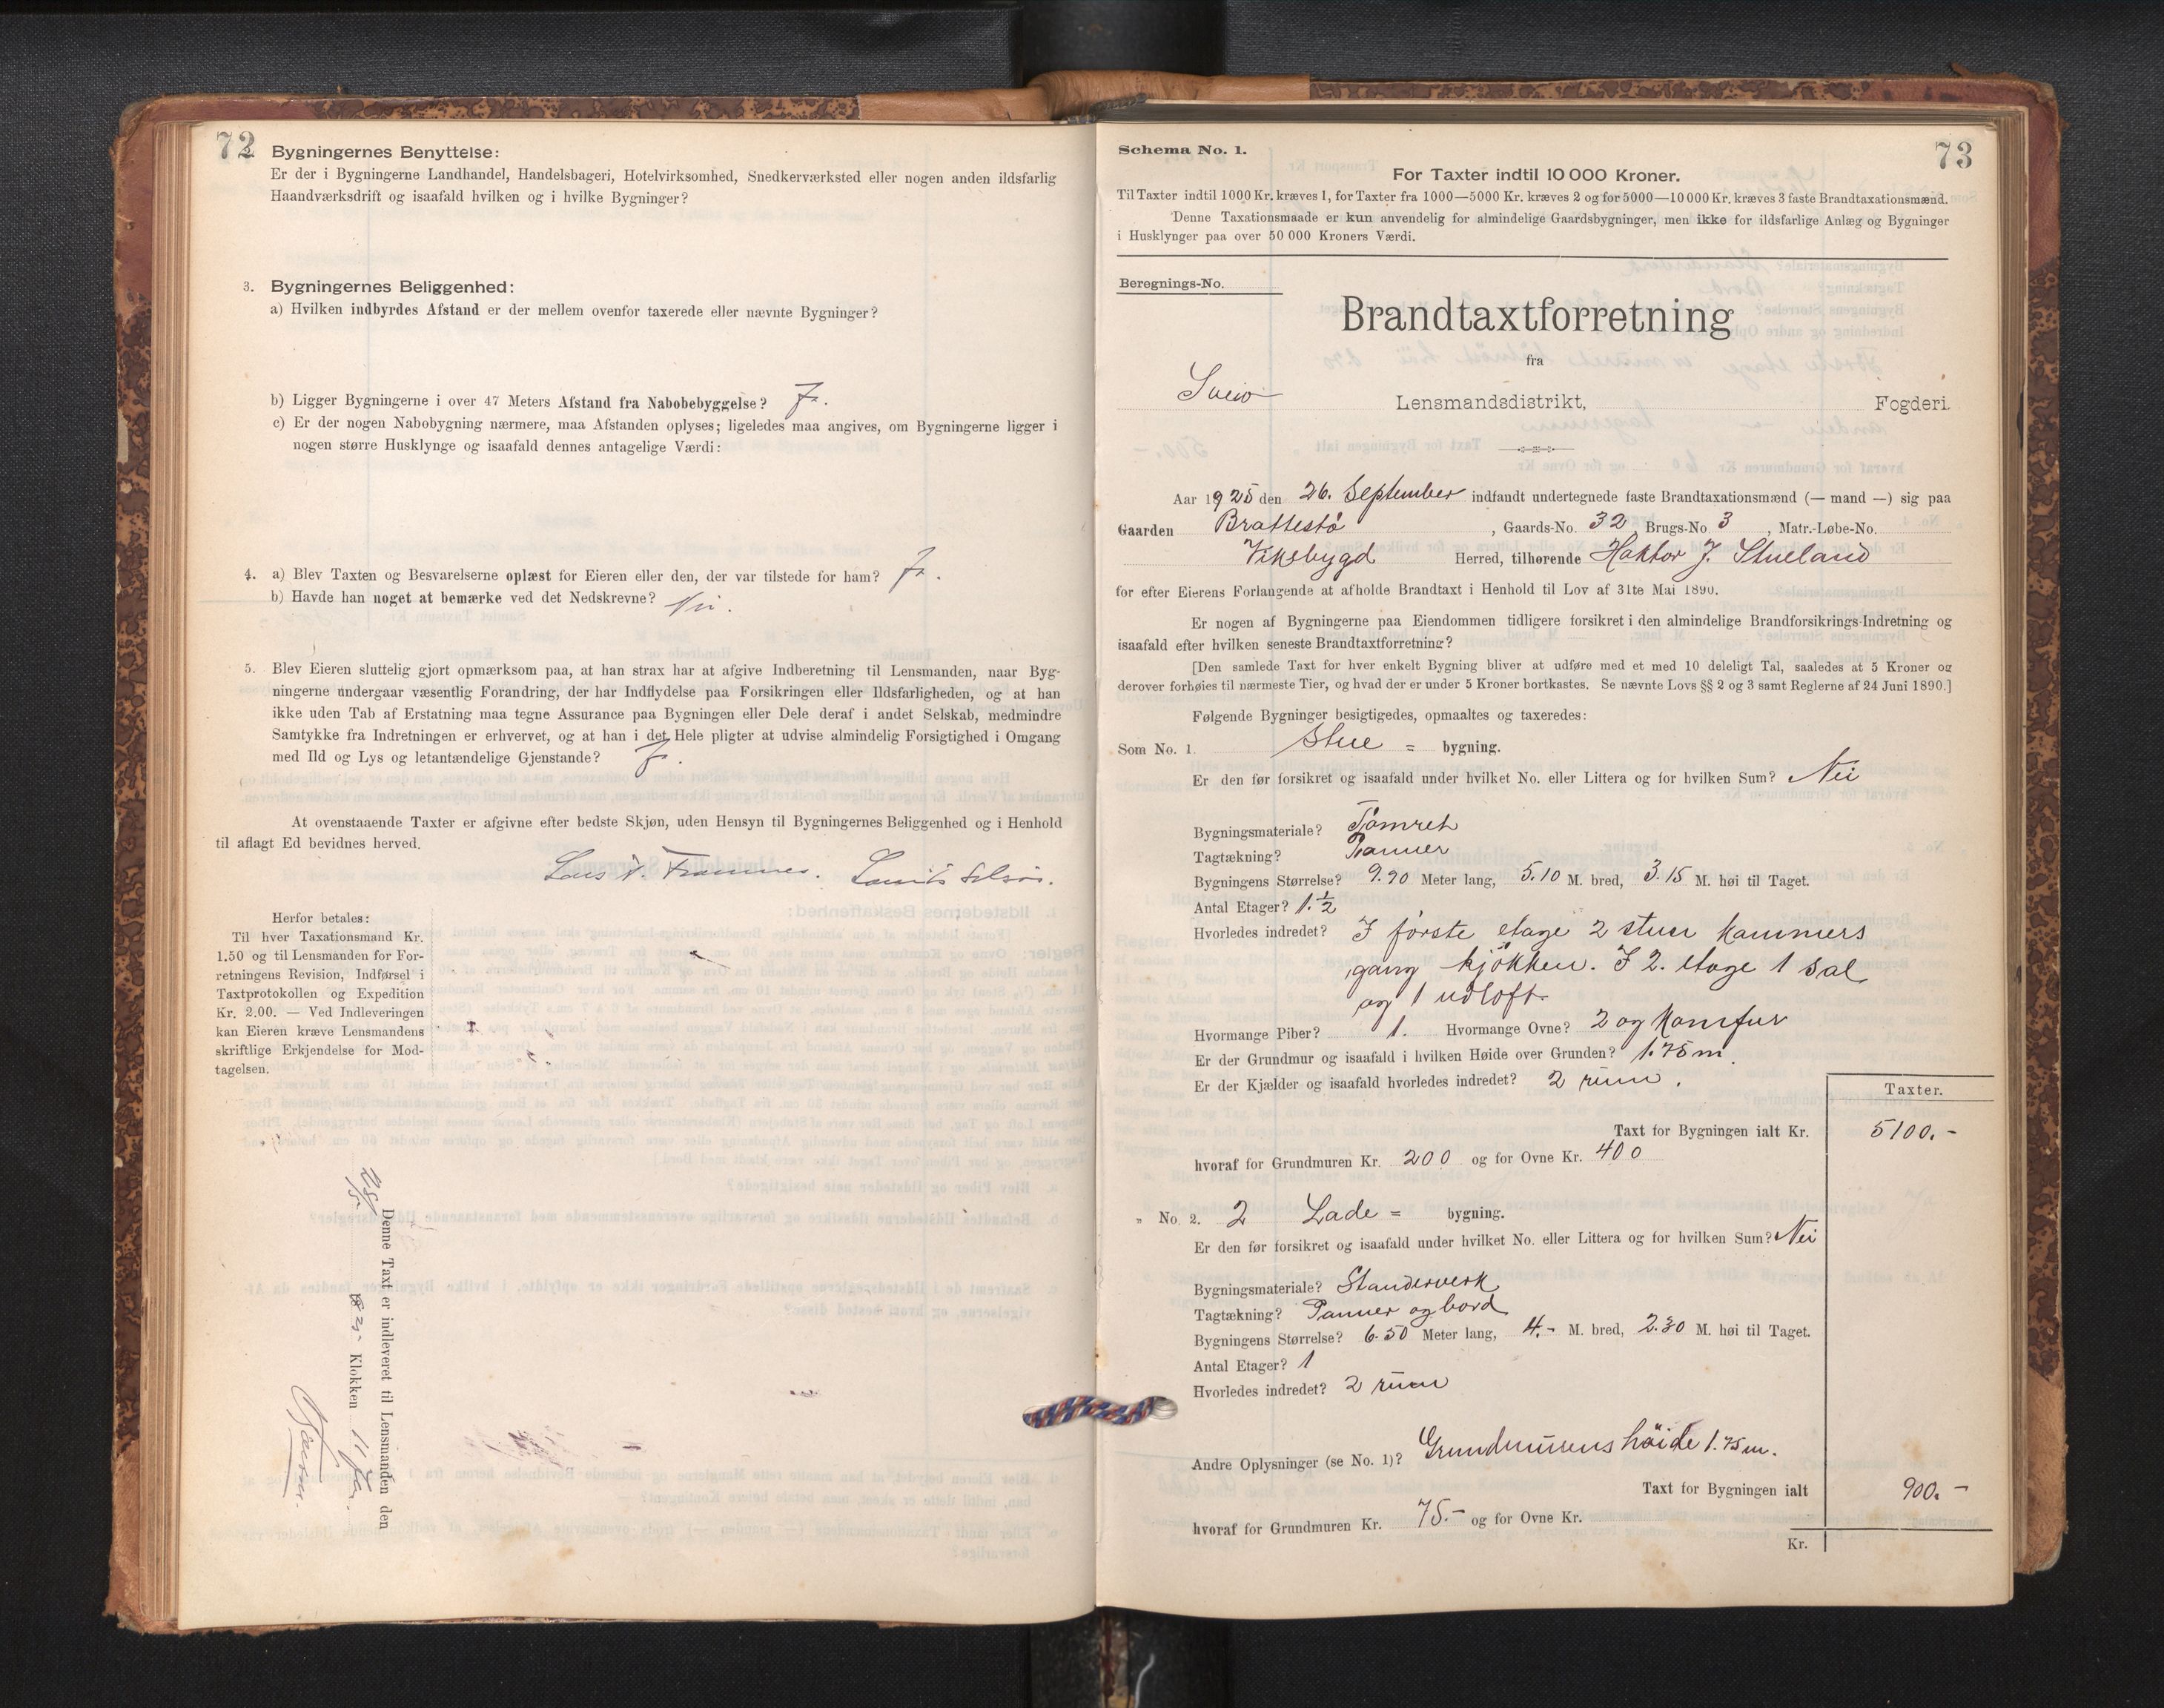 72
Bygningernes Benyttelse:
Er der i Bygningerne Landhandel, Handelsbageri, Hotelvirksomhed, Snedkerværksted eller nogen anden ildsfarlig
Haandværksdrift og isaafald hvilken og i hvilke Bygninger?
3. Bygningernes Beliggenhed:
a) Hvilken indbyrdes Afstand er der mellem ovenfor taxerede eller nævnte Bygninger?
b) Ligger Bygningerne i over 47 Meters Afstand fra Nabobebyggelse? Ja.
c) Er der nogen Nabobygning nærmere, maa Afstanden oplyses; ligeledes maa angives, om Bygningerne ligger i
nogen større Husklynge og isaafald dennes antagelige Værdi:
4. a) Blev Taxten og Besvarelserne oplæst for Eieren eller den, der var tilstede for ham? Ja.
b) Havde han noget at bemærke ved det Nedskrevne? Nei.
5. Blev Eieren sluttelig gjort opmærksom paa, at han strax har at afgive Indberetning til Lensmanden, naar Byg-
ningerne undergaar væsentlig Forandring, der har Indflydelse paa Forsikringen eller Ildsfarligheden, og at han
ikke uden Tab af Erstatning maa tegne Assurance paa Bygningen eller Dele deraf i andet Selskab, medmindre
Samtykke fra Indretningen er erhvervet, og at han i det Hele pligter at udvise almindelig Forsigtighed i Omgang
med Ild og Lys og letantændelige Gjenstande? Ja.
At ovenstaaende Taxter er afgivne efter bedste Skjøn, uden Hensyn til Bygningernes Beliggenhed og i Henhold
til aflagt Ed bevidnes herved.
Lars
Herfor betales:
Til hver Taxationsmand Kr.
1.50 og til Lensmanden for For-
retningens Revision, Indførsel i
Taxtprotokollen og Expedition
Kr. 2.00. — Ved Indleveringen
kan Eieren kræve Lensmandens
skriftlige Erkjendelse for Mod-
tagelsen.
Denne Taxt er indleveret til Lensmanden den
Klokken 11
73
Schema No. 1.
For Taxter indtil 10 000 Kroner.
Til Taxter indtil 1000 Kr. kræves 1, for Taxter fra 1000—5000 Kr. kræves 2 og for 5000—10 000 Kr. kræves 3 faste Brandtaxationsmænd.
Denne Taxationsmaade er kun anvendelig for almindelige Gaardsbygninger, men ikke for ildsfarlige Anlæg og Bygninger
i Husklynger paa over 50 000 Kroners Værdi.
Beregnings-No.
Brandtaxtforretning
fra
Sveio Lensmandsdistrikt, Fogderi.
Aar 1925 den 26. September indfandt undertegnede faste Brandtaxationsmænd (— mand —) sig paa
Gaarden Brattestø, Gaards-No. 32 Brugs-No. 3, Matr.-Løbe-No.
Viksbygd Herred, tilhørende Haktor J. Stueland
for efter Eierens Forlangende at afholde Brandtaxt i Henhold til Lov af 31te Mai 1890.
Er nogen af Bygningerne paa Eiendommen tidligere forsikret i den almindelige Brandforsikrings-Indretning og
isaafald efter hvilken seneste Brandtaxtforretning?
[Den samlede Taxt for hver enkelt Bygning bliver at udføre med et med 10 deleligt Tal, saaledes at 5 Kroner og
derover forhøies til nærmeste Tier, og hvad der er under 5 Kroner bortkastes. Se nævnte Lovs §§ 2 og 3 samt Reglerne af 24 Juni 1890.]
Følgende Bygninger besigtigedes, opmaaltes og taxeredes:
Som No. 1. Stue = bygning.
Er den før forsikret og isaafald under hvilket No. eller Littera og for hvilken Sum? Nei
Bygningsmateriale? Tömret
Tagtækning? Panner
Bygningens Størrelse? 9.90 Meter lang, 5.10 M. bred, 3.15 M. høi til Taget.
Antal Etager? 1.½
Hvorledes indredet? I förste etage 2 stuer kammers
gang kjökken. I 2. etage 1 sal
og 1 udloft.
Hvormange Piber? 1. Hvormange Ovne? 2 og Komfur
Er der Grundmur og isaafald i hvilken Høide over Grunden? 1.75 m.
Er der Kjælder og isaafald hvorledes indredet? 2 rum.
Taxter.
Taxt for Bygningen ialt Kr. 5100.-
hvoraf for Grundmuren Kr. 200 og for Ovne Kr. 400
„ No. 2. 2 Lade = bygning.
Er den før forsikret og isaafald under hvilket No. eller Littera og for hvilken Sum? Nei
Bygningsmateriale? Standerverk
Tagtækning? Panner og bord
Bygningens Størrelse? 6.50 Meter lang, 4.- M. bred, 2.30 M. høi til Taget.
Antal Etager? 1
Hvorledes indredet? 2 rum
Andre Oplysninger (se No. 1)? Grundmurens höide 1.75 m.
Taxt for Bygningen ialt 900.-
hvoraf for Grundmuren Kr. 75.- og for Ovne Kr.
Kr.